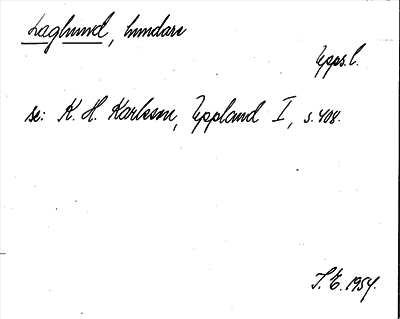 Laglund, hundare
Upps. l.
se: K. H. Karlsson, Uppland I, s. 408.
S. E. 1954.